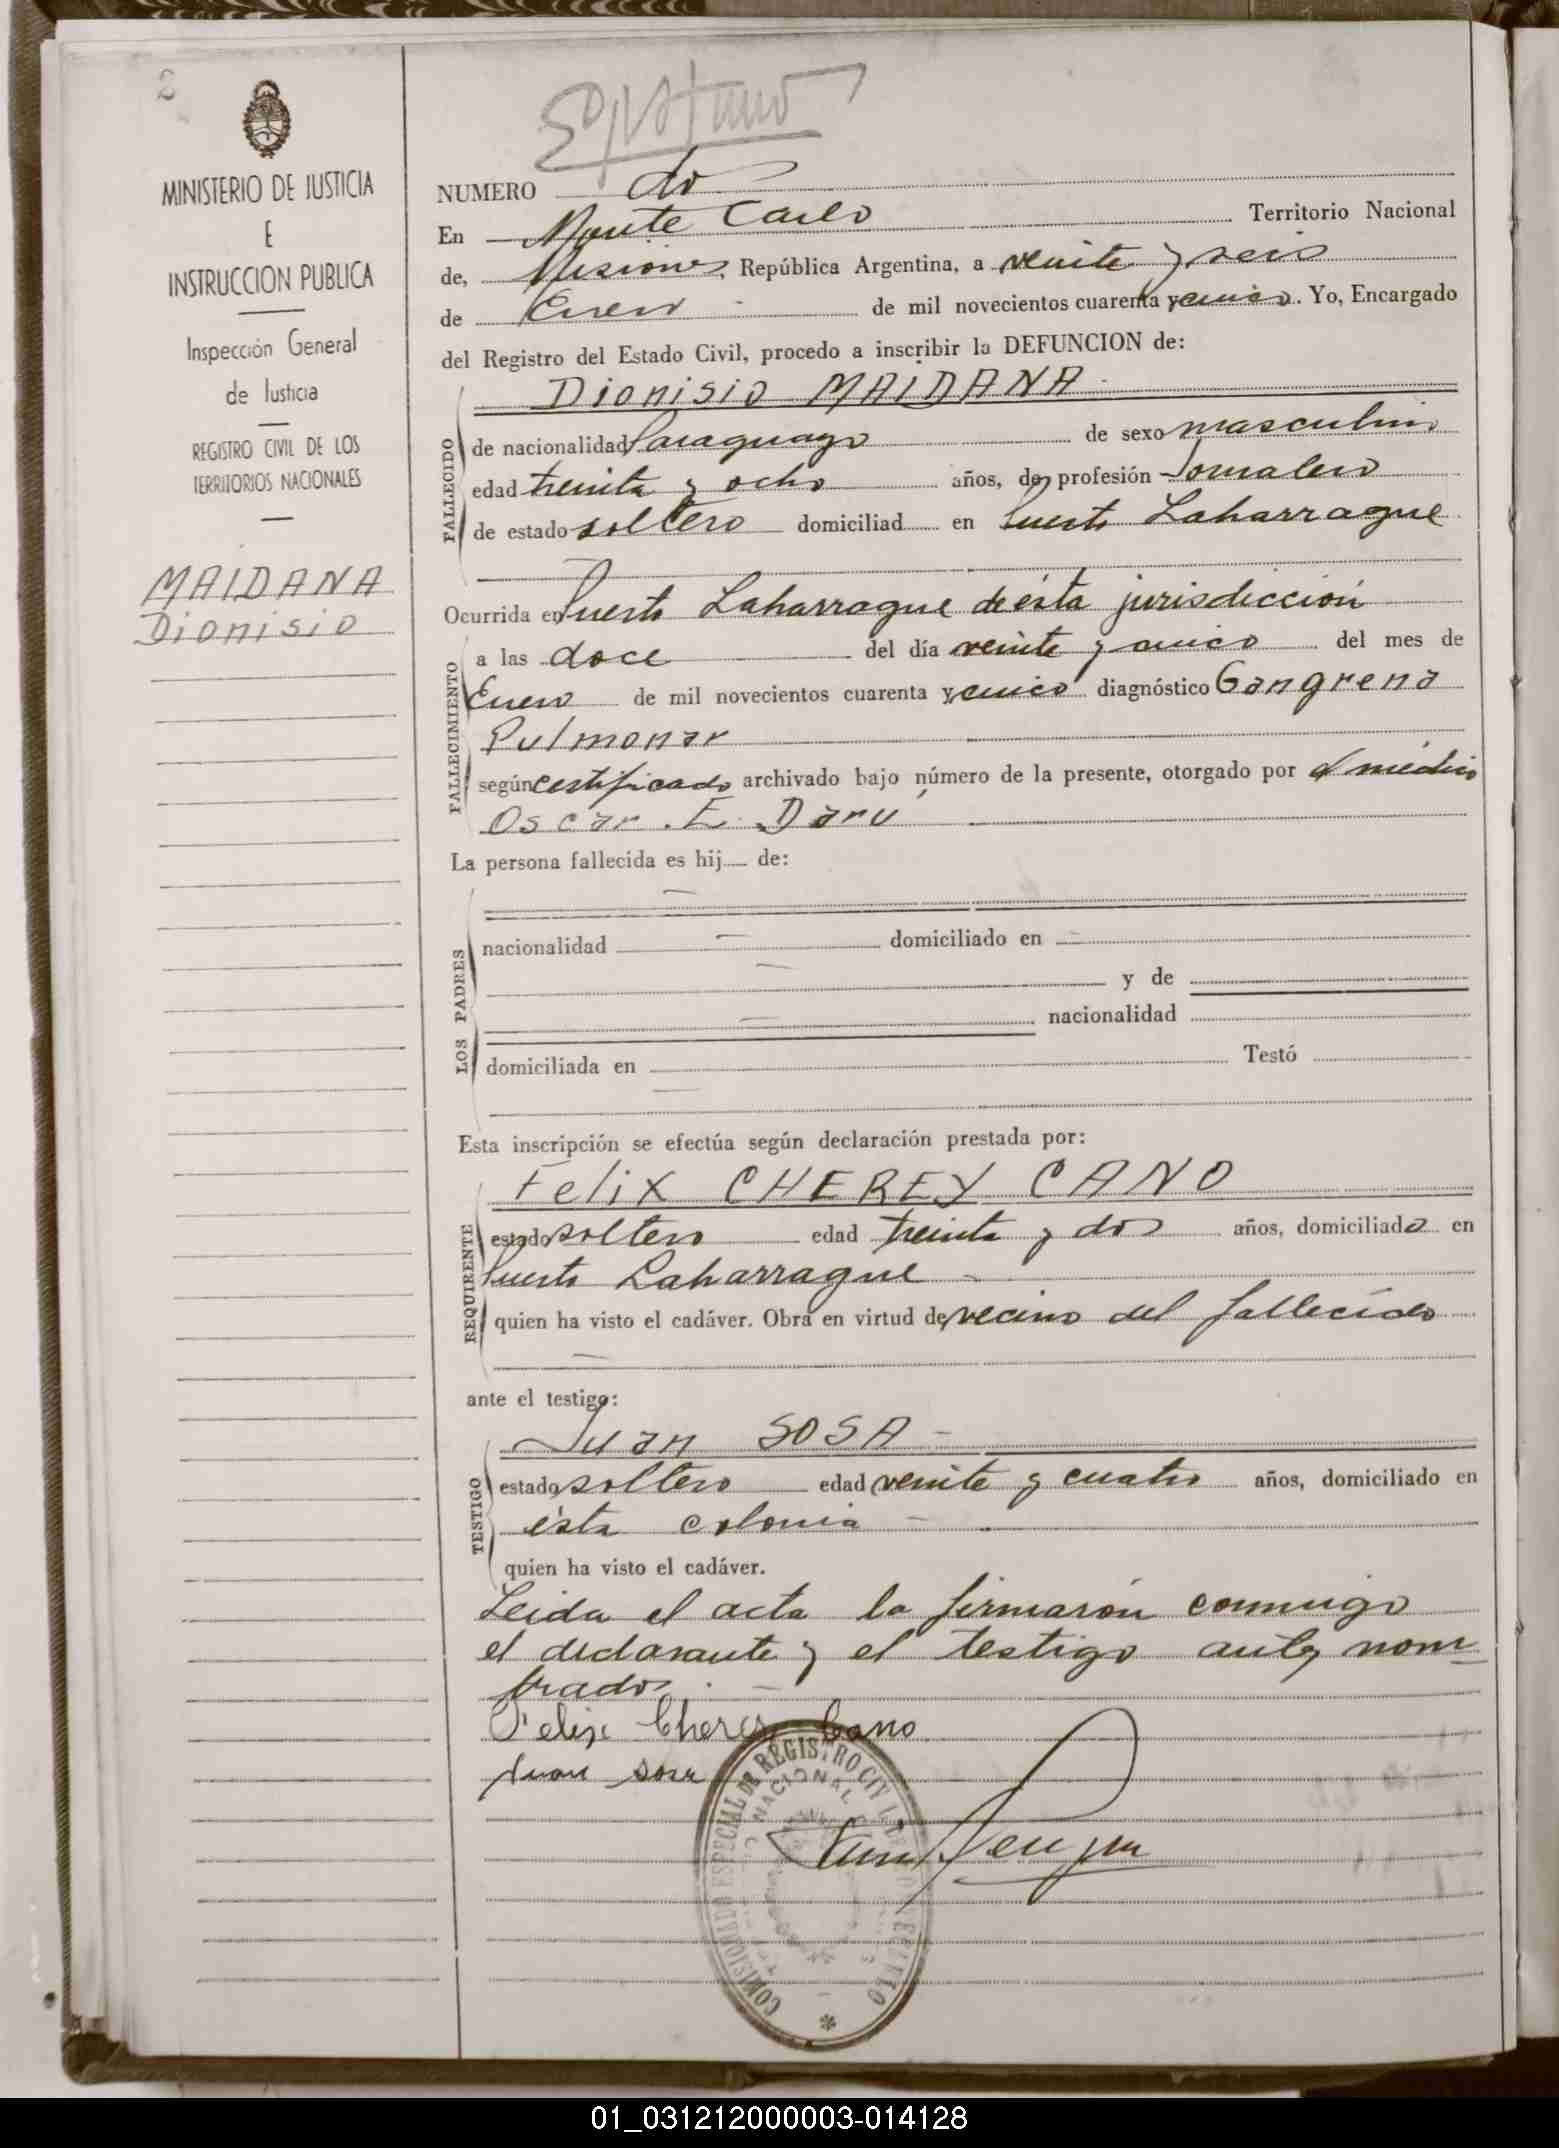 2
MINISTERIO DE JUSTICIA
E
INSTRUCCION PUBLICA
Inspección General
de Justicia
REGISTRO CIVIL DE LOS
TERRITORIOS NACIONALES
MAIDANA
Dionisio
NUMERO dos
En Monte Carlo Territorio Nacional
de, Misiones, República Argentina, a veinte y seis
de Enero de mil novecientos cuarenta y cinco. Yo, Encargado
del Registro del Estado Civil, procedo a inscribir la DEFUNCION de:
Dionisio MAIDANA
FALLECIDO
de nacionalidad Paraguayo de sexo masculino
edad treinta y ocho años, de profesión Jornalero
de estado soltero domiciliad en Puerto Laharrague
Ocurrida en Puerto Laharrague de ésta jurisdicción
FALLECIMIENTO
a las doce del día veinte y cinco del mes de
Enero de mil novecientos cuarenta y cinco diagnóstico Gangrena
Pulmonar
según certificado archivado bajo número de la presente, otorgado por el médico
Oscar E. Darú
La persona fallecida es hij de:
LOS PADRES
nacionalidad domiciliado en
y de
nacionalidad
domiciliada en Testó
Esta inscripción se efectúa según declaración prestada por:
Felix CHEREY CANO
REQUIRENTE
estado soltero edad treinta y dos años, domiciliado en
Puerto Laharrague
quien ha visto el cadáver. Obra en virtud de vecino del fallecido
ante el testigo:
Juan SOSA
TESTIGO
estado soltero edad veinte y cuatro años, domiciliado en
ésta colonia
quien ha visto el cadáver.
Leida el acta la firmarón conmigo
el declarante y el testigo antes nom
brados.
Felix Cherey Cano
Juan Sosa
COMISIONADO ESPECIAL DE REGISTRO CIVIL
NACIONAL
01_031212000003-014128